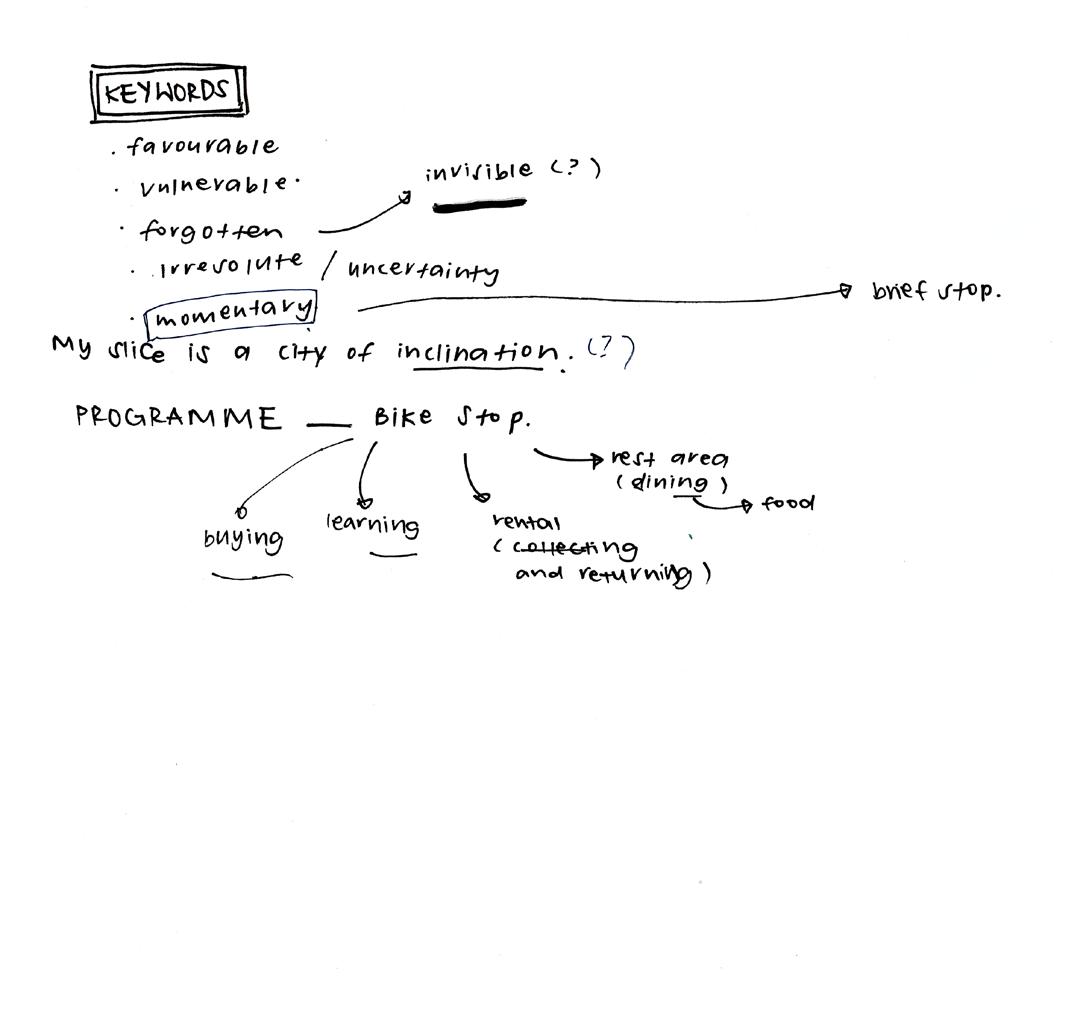 KEYWORDS
. favourable
. vulnerable.
. forgotten
invisible (?)
. irresolute / uncertainty
. momentary
brief stop.
My slice is a city of inclination. (?)
PROGRAMME — Bike stop.
rest area
(dining)
food
buying
learning
rental
(collecting
and returning)